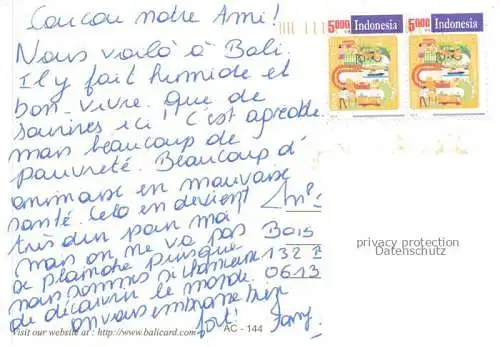 Coucou notre Ami!
5000 Indonesia 5000 Indonesia
Nous voilà à Bali.
Il y fait humide et
bon-vivre. Que de
sourires ici! C'est agréable
mais beaucoup de
pauvreté. Beaucoup d'
animaux en mauvaise
santé. Cela en devient
très dur pour moi
mais on ne va pas
se plaindre puisque
nous sommes si chanceux
de découvrir le monde.
on vous embrasse très
fort!
Bois
132
0613
privacy protection
Datenschutz
Visit our website at : http://www.balicard.com
AC - 144